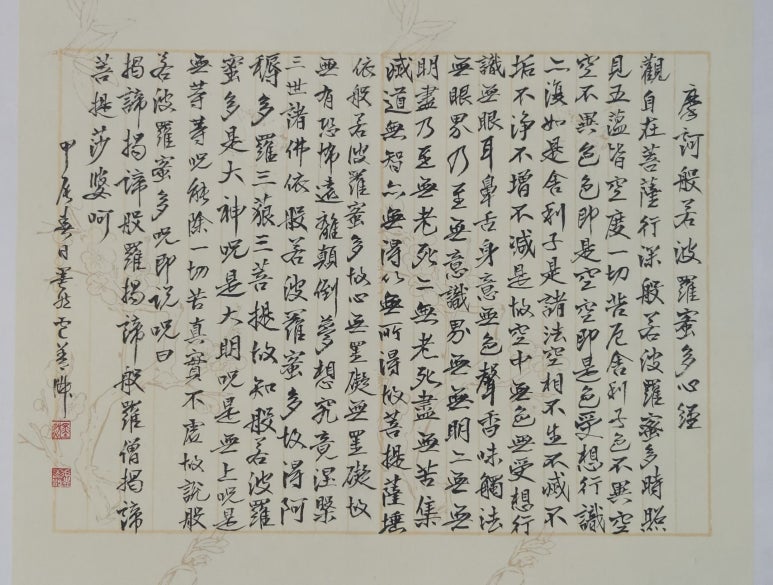 摩訶般若波羅蜜多心經
觀自在菩薩行深般若波羅蜜多時照
見五蘊皆空度一切苦厄舍利子色不異空
空不異色色即是空空即是色受想行識
亦復如是舍利子是諸法空相不生不滅不
垢不淨不增不減是故空中無色無受想行
識無眼耳鼻舌身意無色聲香味觸法
無眼界乃至無意識界無無明亦無無
明盡乃至無老死亦無老死盡無苦集
滅道無智亦無得以無所得故菩提薩埵
依般若波羅蜜多故心無罣礙無罣礙故
無有恐怖遠離顛倒夢想究竟涅槃
三世諸佛依般若波羅蜜多故得阿
耨多羅三藐三菩提故知般若波羅
蜜多是大神呪是大明呪是無上呪是
無等等呪能除一切苦真實不虛故說般
若波羅蜜多呪即说呪曰
揭諦揭諦般羅揭諦般羅僧揭諦
菩提莎婆呵
甲辰春日